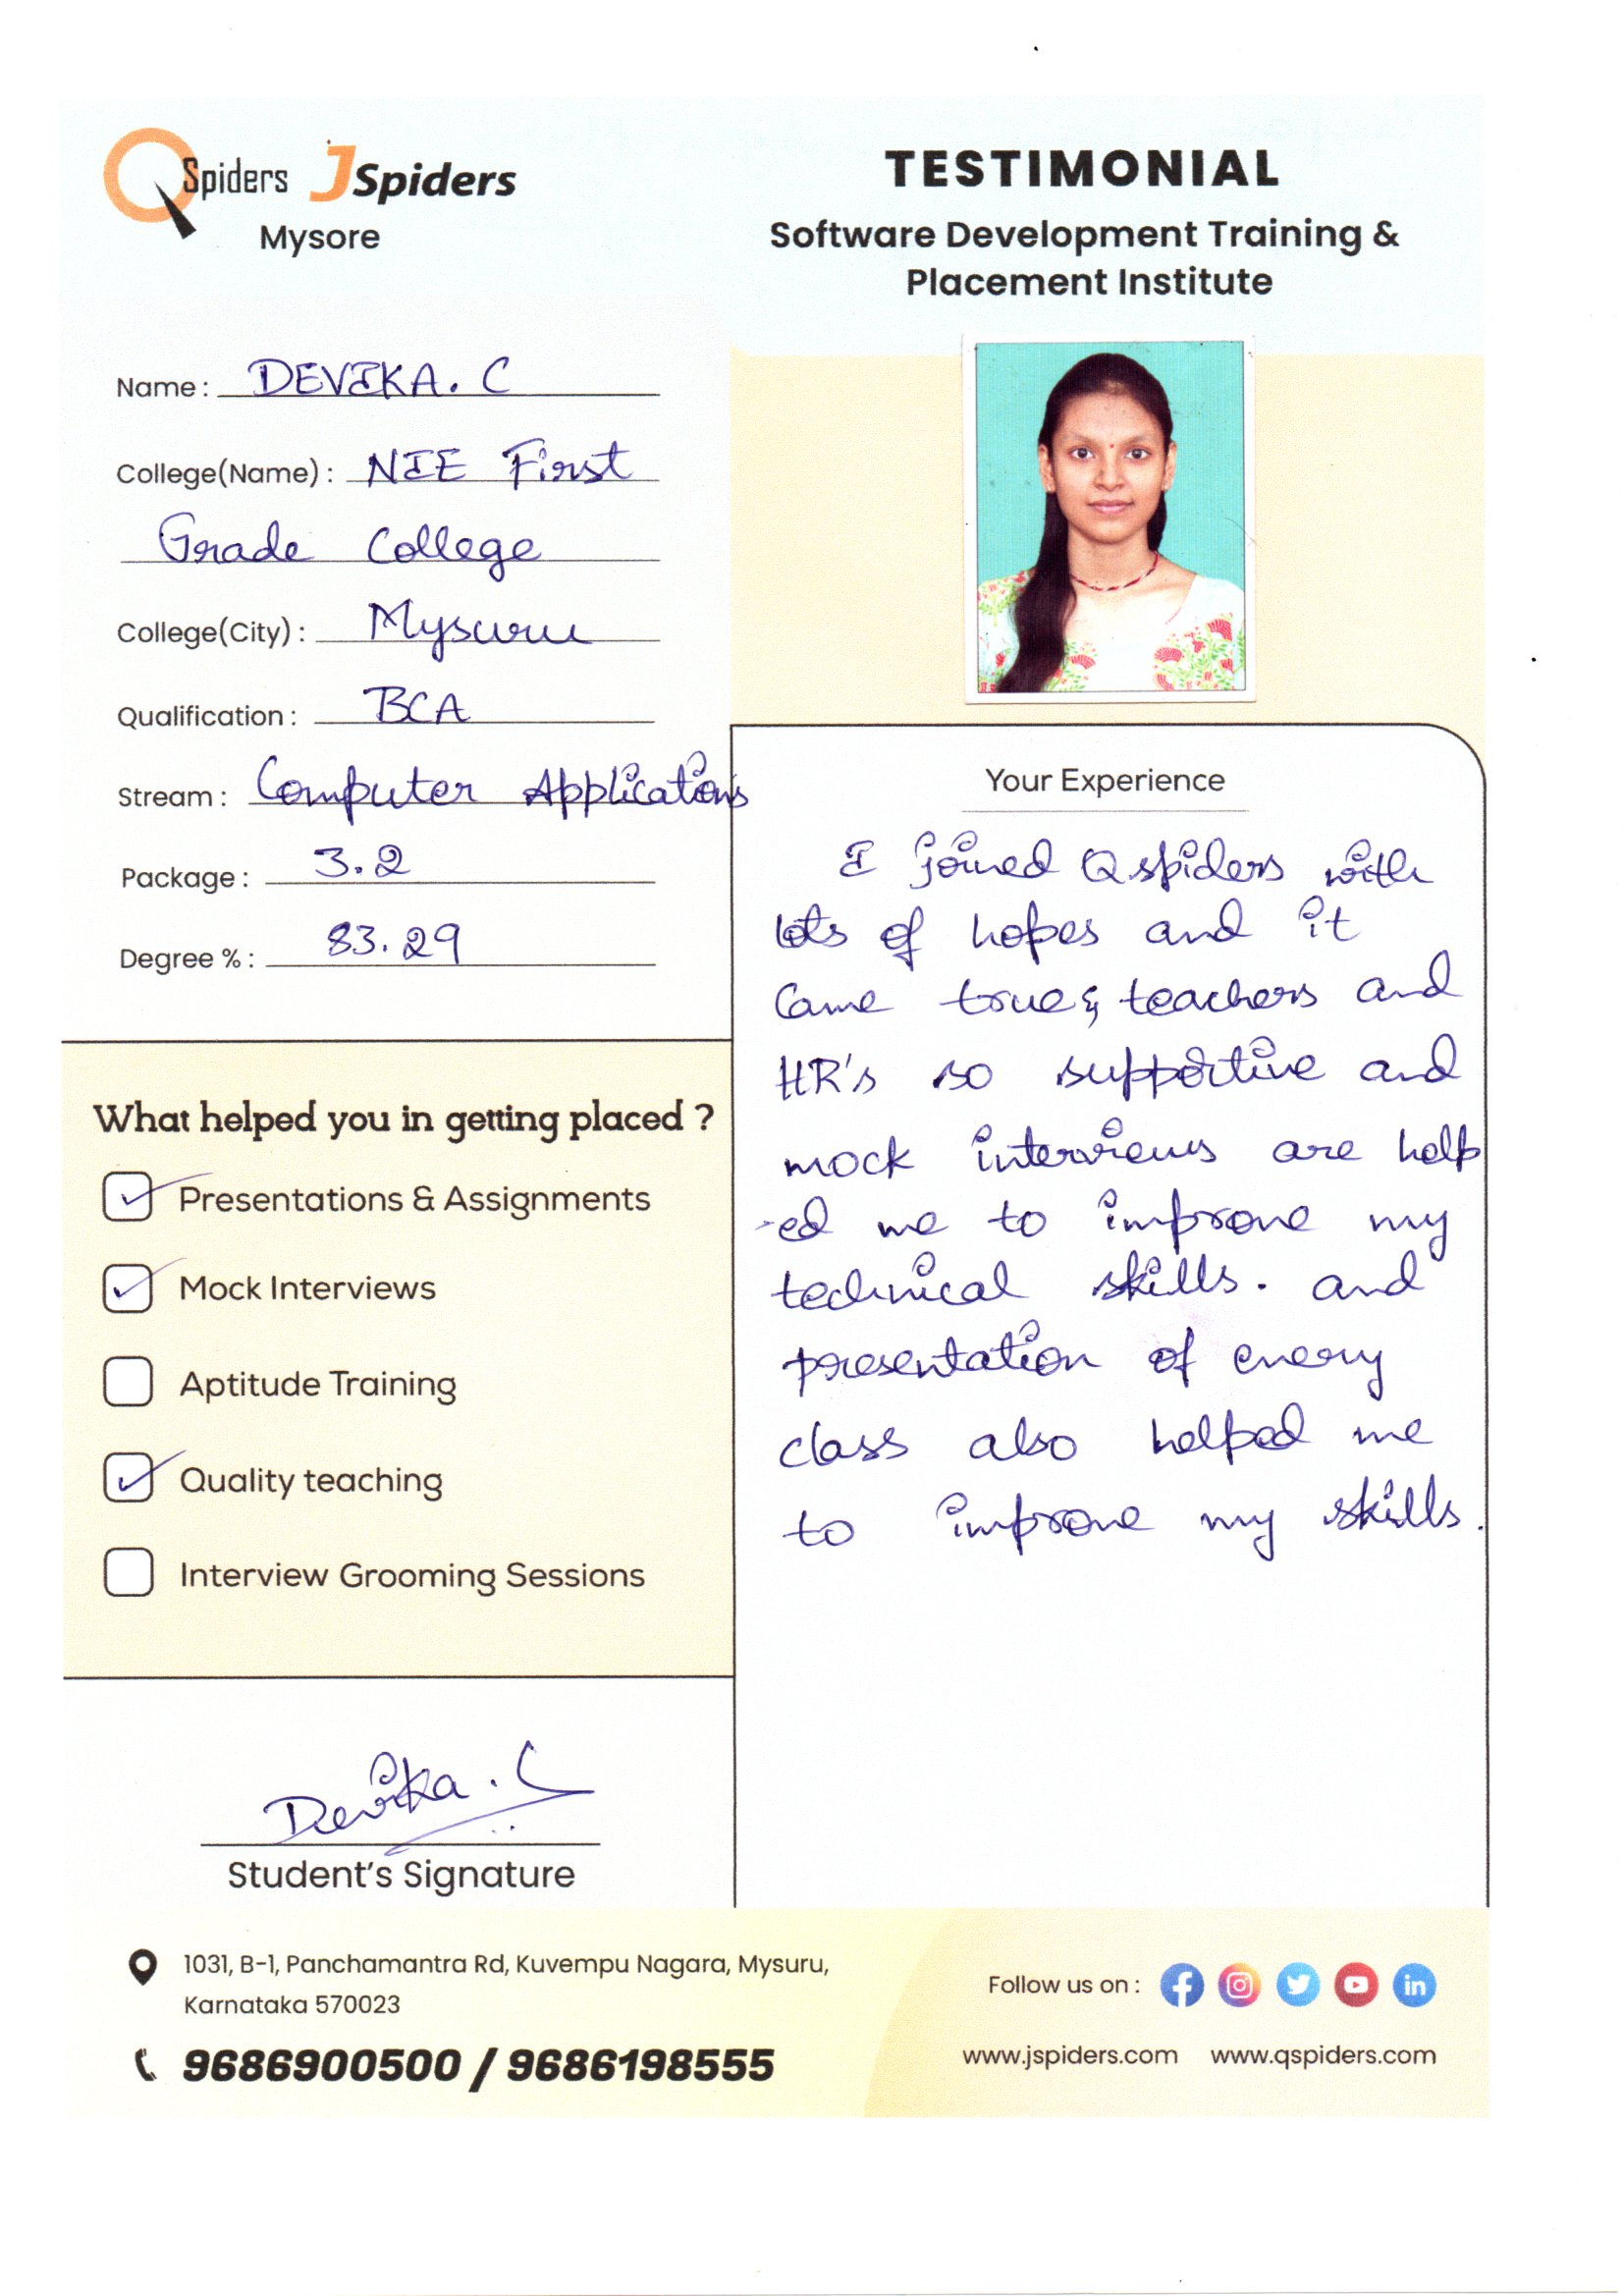 QSpiders JSpiders
Mysore
TESTIMONIAL
Software Development Training &
Placement Institute
Name : DEVIKA. C
College(Name) : NIE First
Grade College
College(City) : Mysuru
Qualification : BCA
Stream : Computer Applications
Package : 3.2
Degree % : 83.29
What helped you in getting placed ?
Presentations & Assignments
Mock Interviews
Aptitude Training
Quality teaching
Interview Grooming Sessions
Devika . C
Student's Signature
Your Experience
I joined Qspiders with
lots of hopes and it
Came true & teachers and
HR's so supportive and
mock interviews are help
-ed me to improve my
technical skills. and
presentation of every
class also helped me
to improve my skills.
1031, B-1, Panchamantra Rd, Kuvempu Nagara, Mysuru,
Karnataka 570023
9686900500 / 9686198555
Follow us on :
www.jspiders.com www.qspiders.com